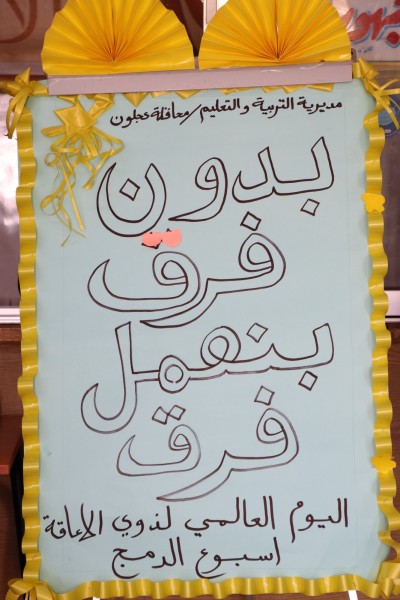 مديرية التربية والتعليم / محافظة عجلون
بدون
فرق
بنعمل
فرق
اليوم العالمي لذوي الاعاقة
اسبوع الدمج